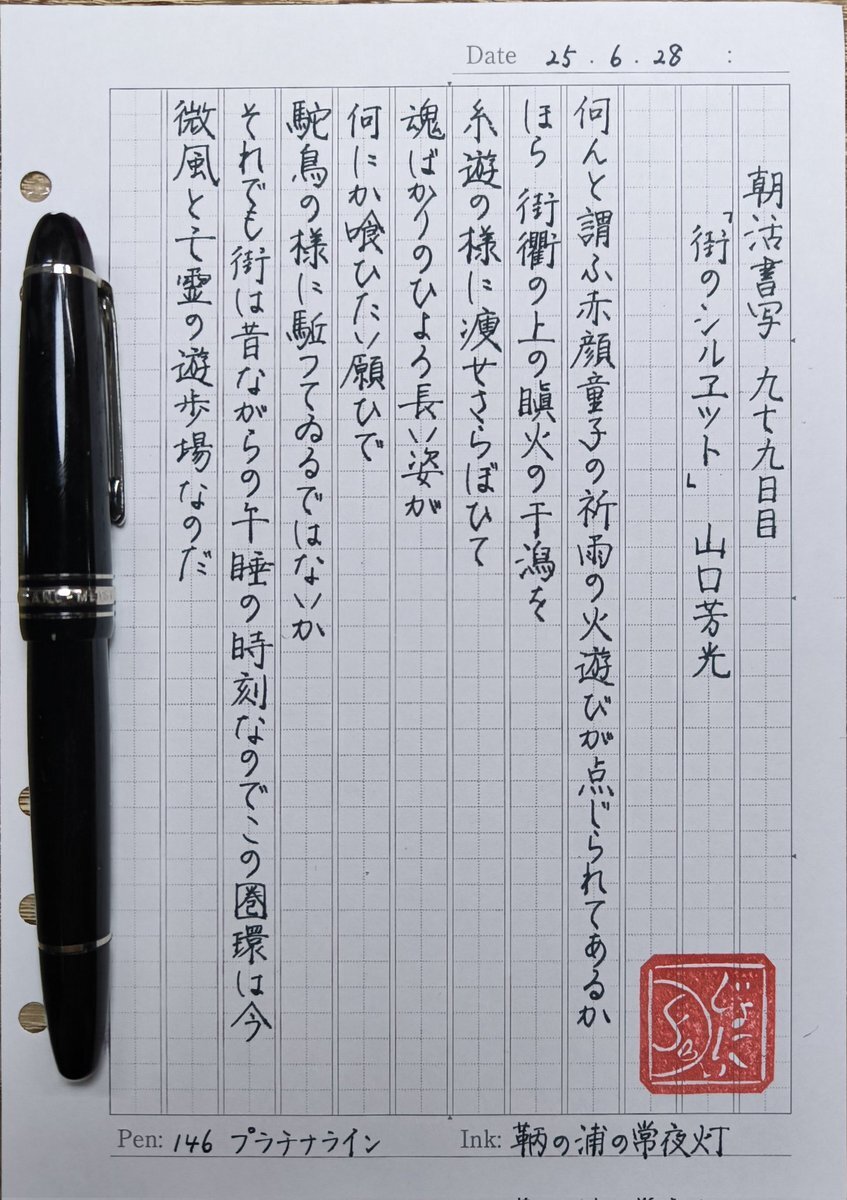 Date 25.6.28 :
朝活書写 九七九日目
「街のシルヱット」 山口芳光
何んと謂ふ赤顔童子の祈雨の火遊びが点じられてあるか
ほら 街衢の上の瞋火の干潟を
糸遊の様に痩せさらぼひて
魂ばかりのひよろ長い姿が
何にか喰ひたい願ひで
駝鳥の様に駈つてゐるではないか
それでも街は昔ながらの午睡の時刻なのでこの圏環は今
微風と亡霊の遊歩場なのだ
Pen: 146 プラチナライン
Ink: 鞆の浦の常夜灯